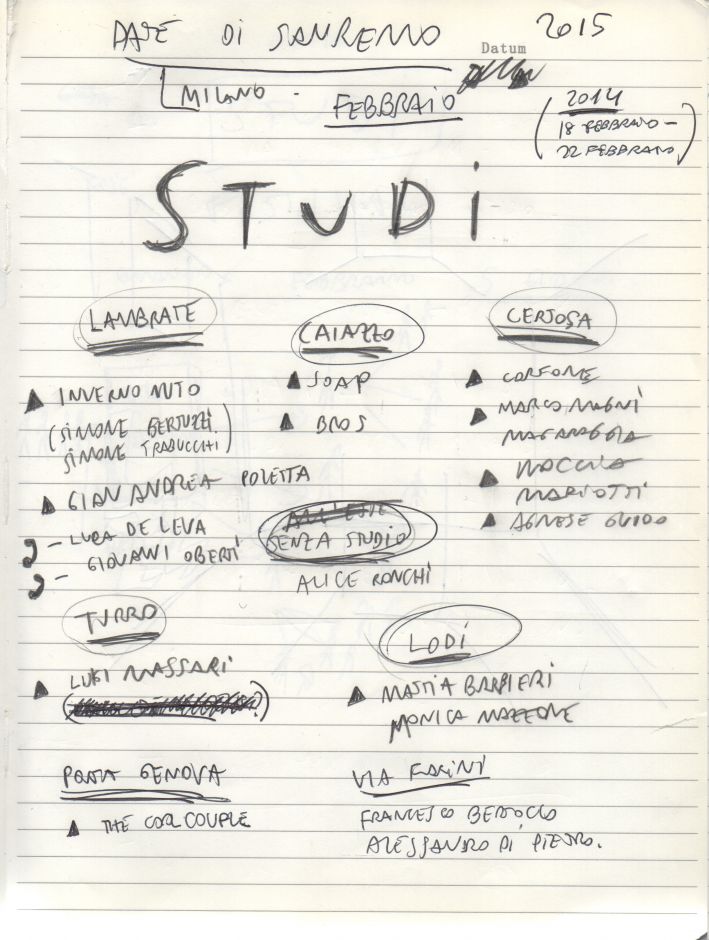 DATE DI SANREMO 2015
Datum
MILANO - FEBBRAIO
(2014
18 FEBBRAIO -
22 FEBBRAIO)
STUDI
LAMBRATE
▲ INVERNO MUTO
(SIMONE BERTUZZI
SIMONE TRABUCCHI)
▲ GIAN ANDREA POLETTA
- LUCA DE LEVA
- GIOVANNI OBERTI
CAIAZZO
▲ SOAP
▲ BROS
CERTOSA
▲ CORFONE
▲ MARCO MAGNI
▲ NOCCIOLA
MARIOTTI
▲ AGNESE GUIDO
SENZA STUDIO
ALICE RONCHI
TURRO
▲ LUIGI MASSARI
LODI
▲ MATTIA BARBIERI
MONICA MAZZONE
PORTA GENOVA
▲ THE COOL COUPLE
VIA FARINI
FRANCESCO BERTOCCO
ALESSANDRO DI PIETRO.